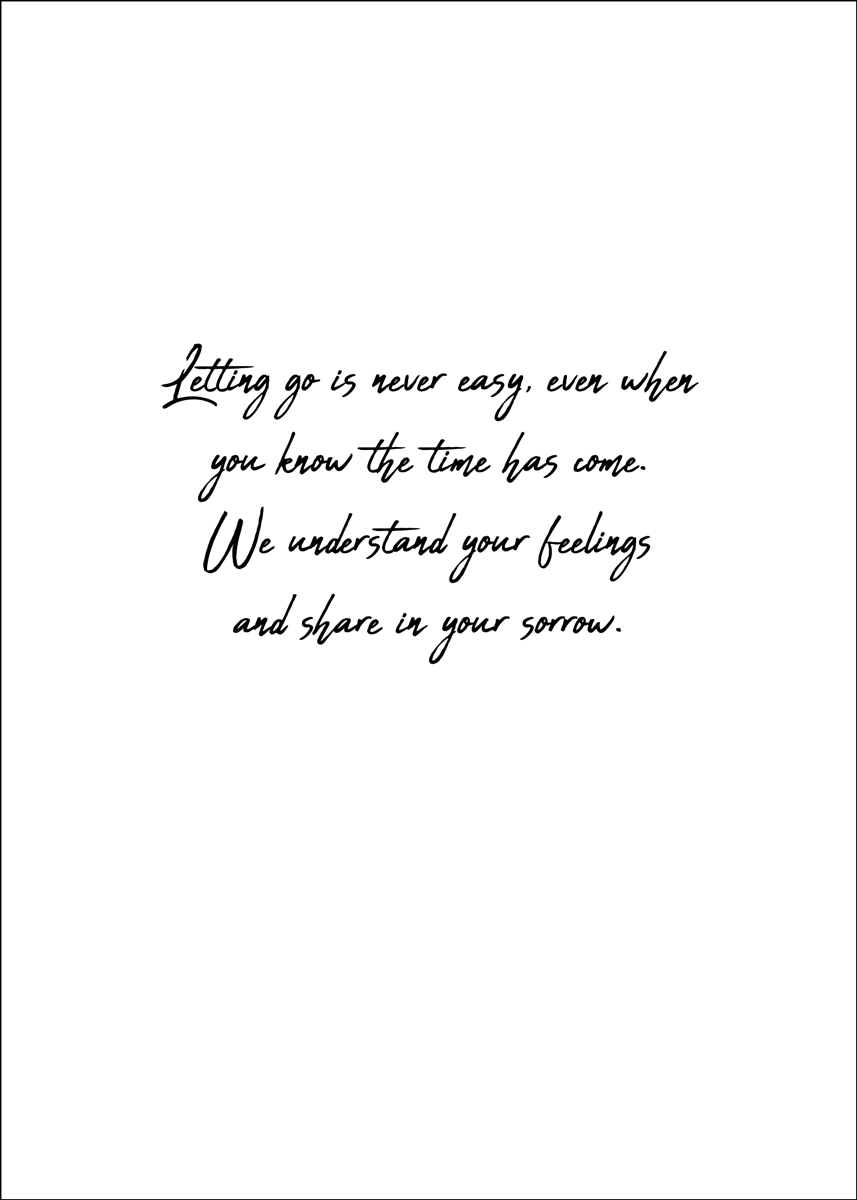 Letting go is never easy, even when
you know the time has come.
We understand your feelings
and share in your sorrow.